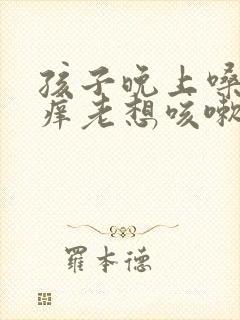 孩子晚上嗓
痒老想咳嗽
羅本德